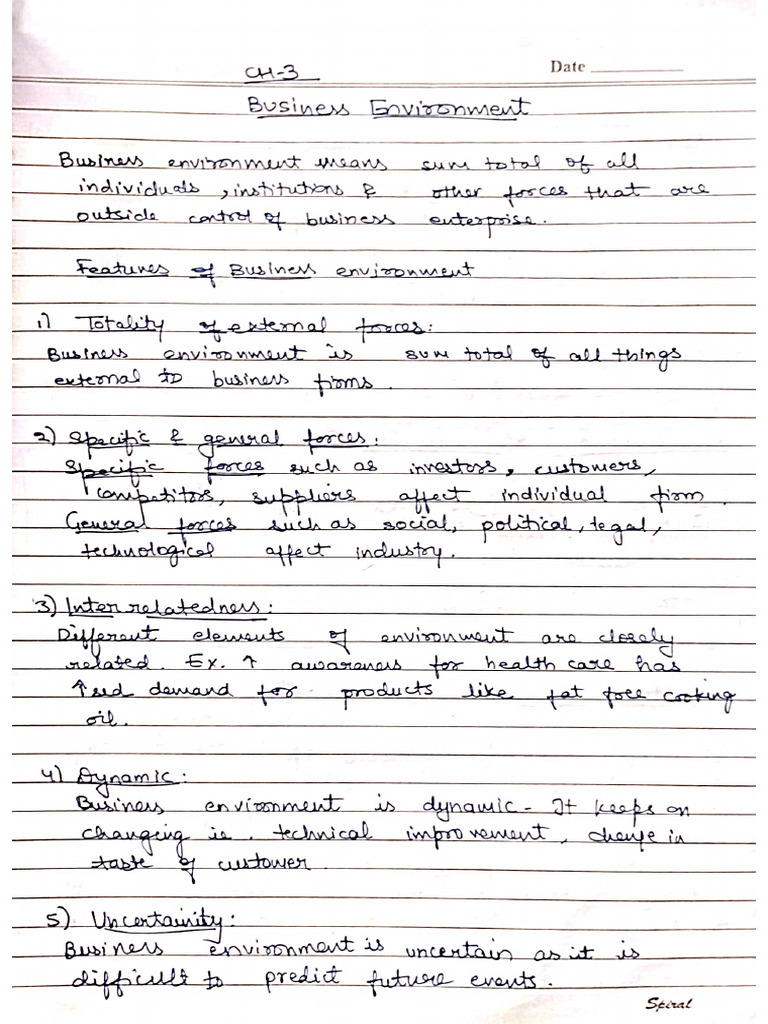 CH-3
Date
Business Environment
Business environment means sum total of all
individuals, institutions & other forces that are
outside control of business enterprise.
Features of Business environment
1) Totality of external forces:
Business environment is sum total of all things
external to business firms.
2) Specific & general forces:
Specific forces such as investors, customers,
competitors, suppliers affect individual firm.
General forces such as social, political, legal,
technological affect industry.
3) Inter relatedness:
Different elements of environment are closely
related. Ex. ↑ awareness for health care has
↑sed demand for products like fat free cooking
oil.
4) Dynamic:
Business environment is dynamic - It keeps on
changing ie. technical improvement, change in
taste of customer.
5) Uncertainity:
Business environment is uncertain as it is
difficult to predict future events.
Spiral